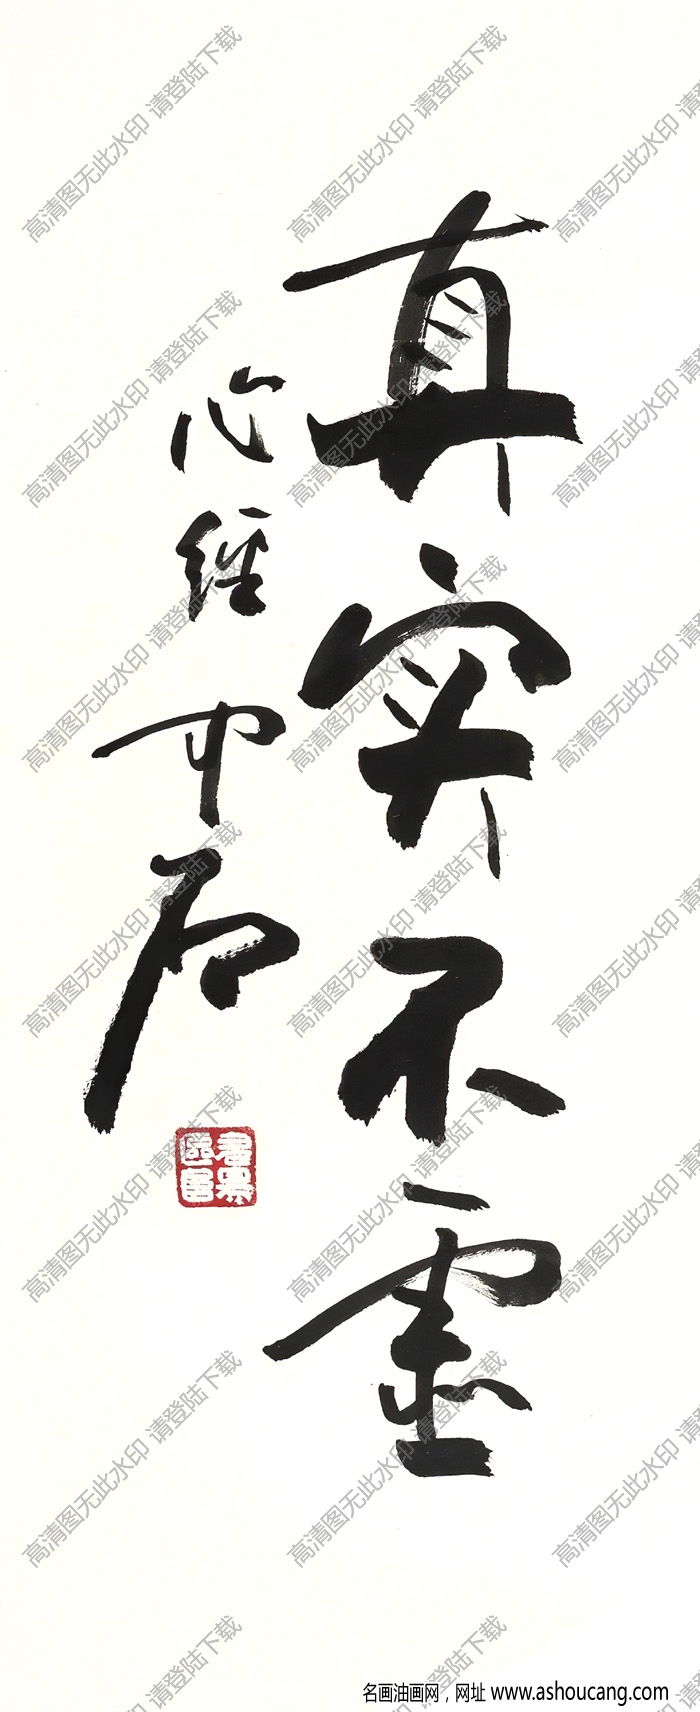 真实不虚
心经 中石
高清图无此水印 请登陆下载
名画油画网，网址 www.ashoucang.com